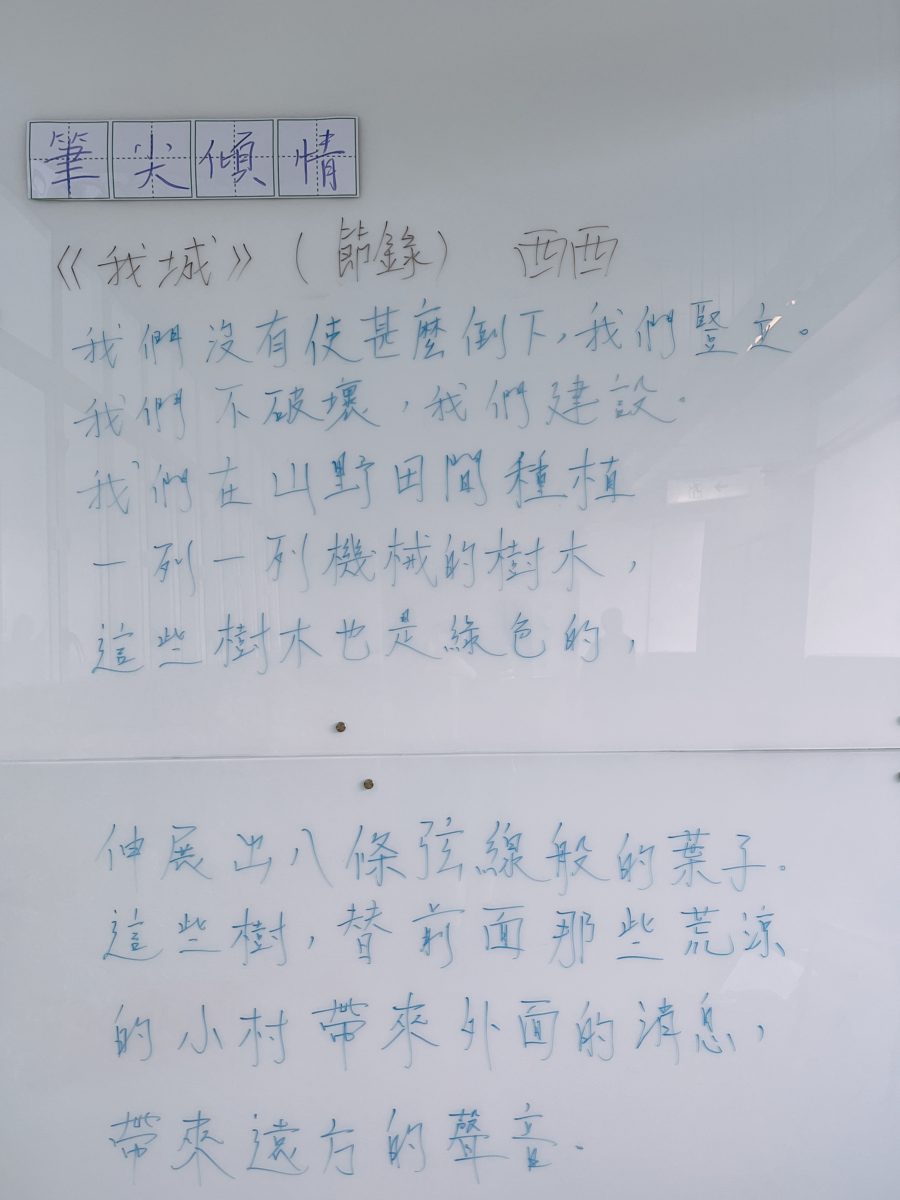 筆尖傾情
《我城》（節錄） 西西
我們沒有使甚麼倒下，我們豎立。
我們不破壞，我們建設。
我們在山野田間種植
一列一列機械的樹木，
這些樹木也是綠色的，
伸展出八條弦線般的葉子。
這些樹，替前面那些荒涼
的小村帶來外面的消息，
帶來遠方的聲音。